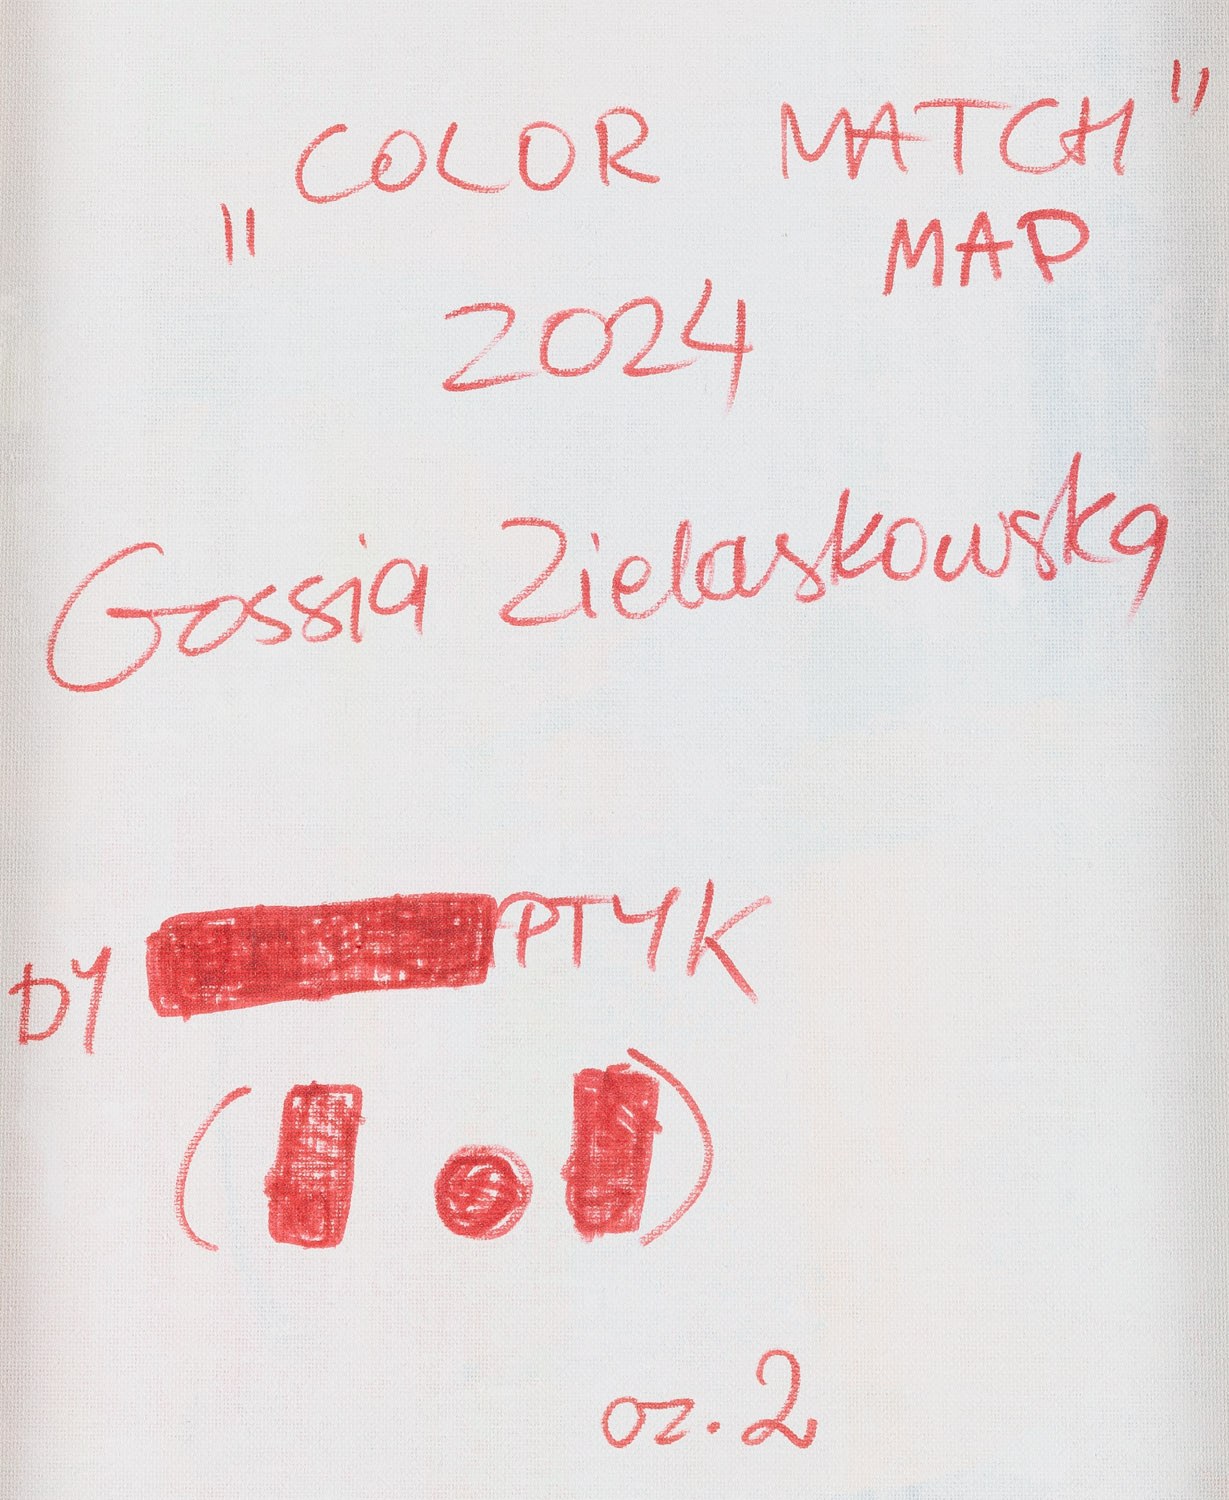 "COLOR MATCH"
MAP
2024
Gossia Zielaskowska
DY PTYK
( )
cz. 2